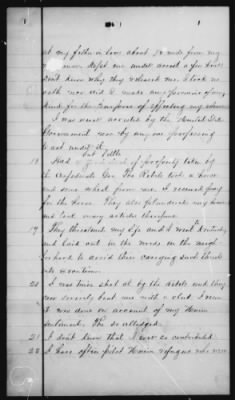 at my father in laws about 1/2 mile from my
house. Kept me under arrest a few hours
dont know why they released me. I took no
oath nor did I make any promise of any
kind for the purpose of effecting my release
I was never arrested by the United States
Government nor by any one professing
to act under it.
18 Had a good deal of property taken by
the Confederate Gov. The Rebels took a horse
and some wheat from me. I received pay
for the horse. They also plundered my house
and took many articles therefrom
19 They threatened my life and I went
and laid out in the woods in the neigh-
borhood to avoid their carrying such threats
into execution.
20 I was twice shot at by the Rebels and they
very severely beat me with a club. I
it was done on account of my Union
sentiments. The so alledged.
21 I don't know that I ever so contributed
22 I have often piloted Union refugees who were